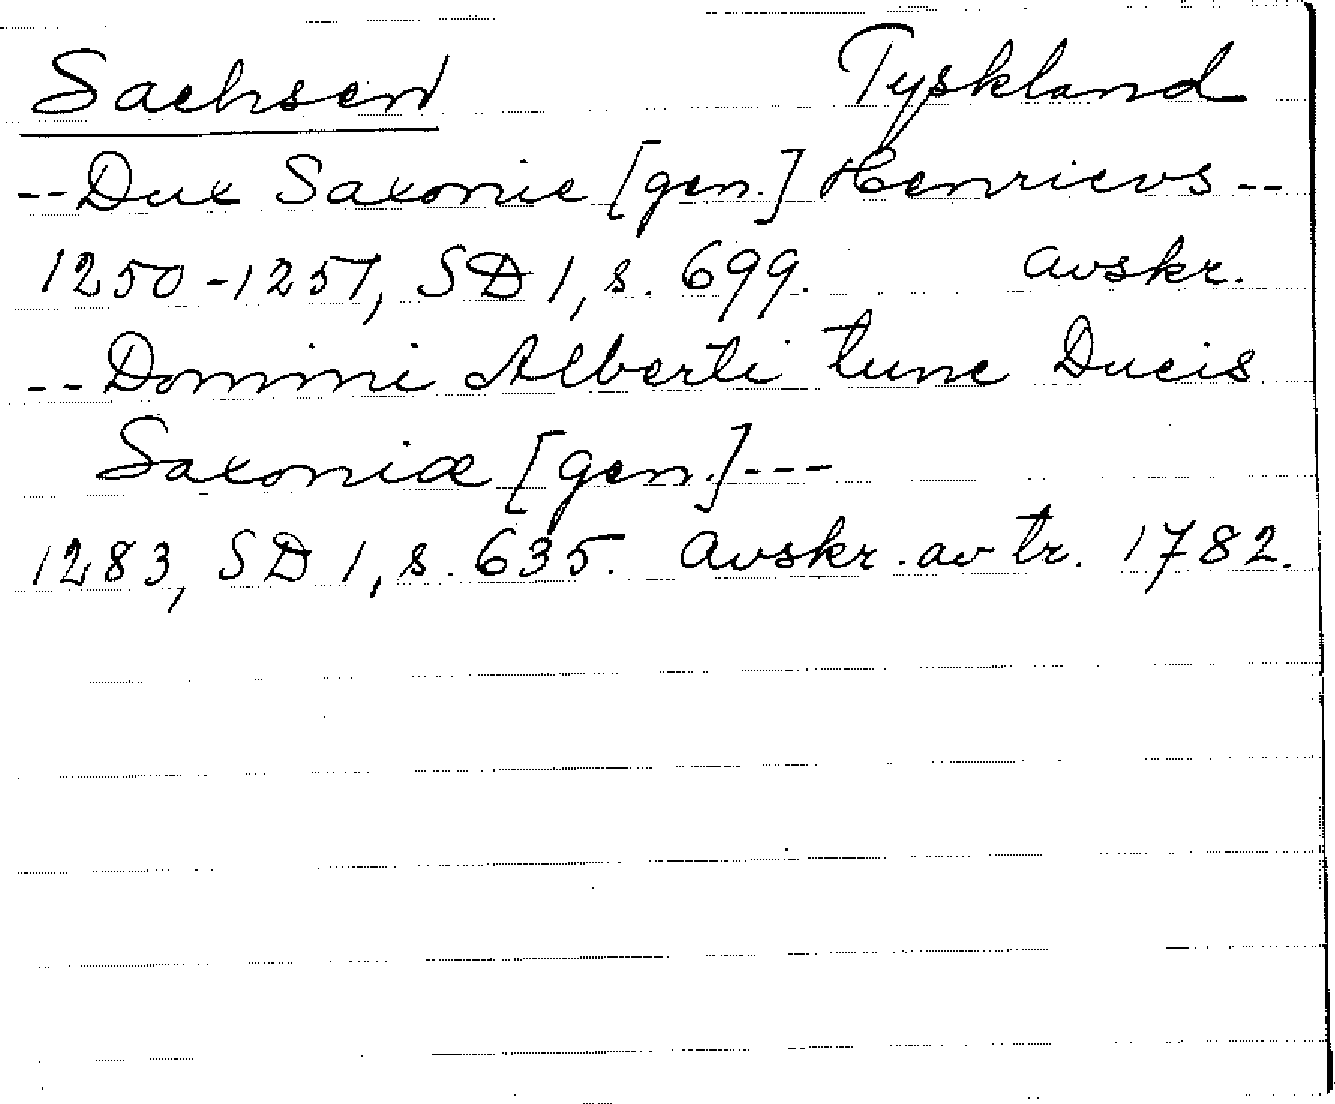 Sachsen Tyskland
--Dux Saxonie [gen.] Henricvs--
1250-1257, SD 1, s. 699. avskr.
--Domini Alberti tunc Ducis
Saxoniæ [gen.]---
1283, SD 1, s. 635. avskr. av tr. 1782.